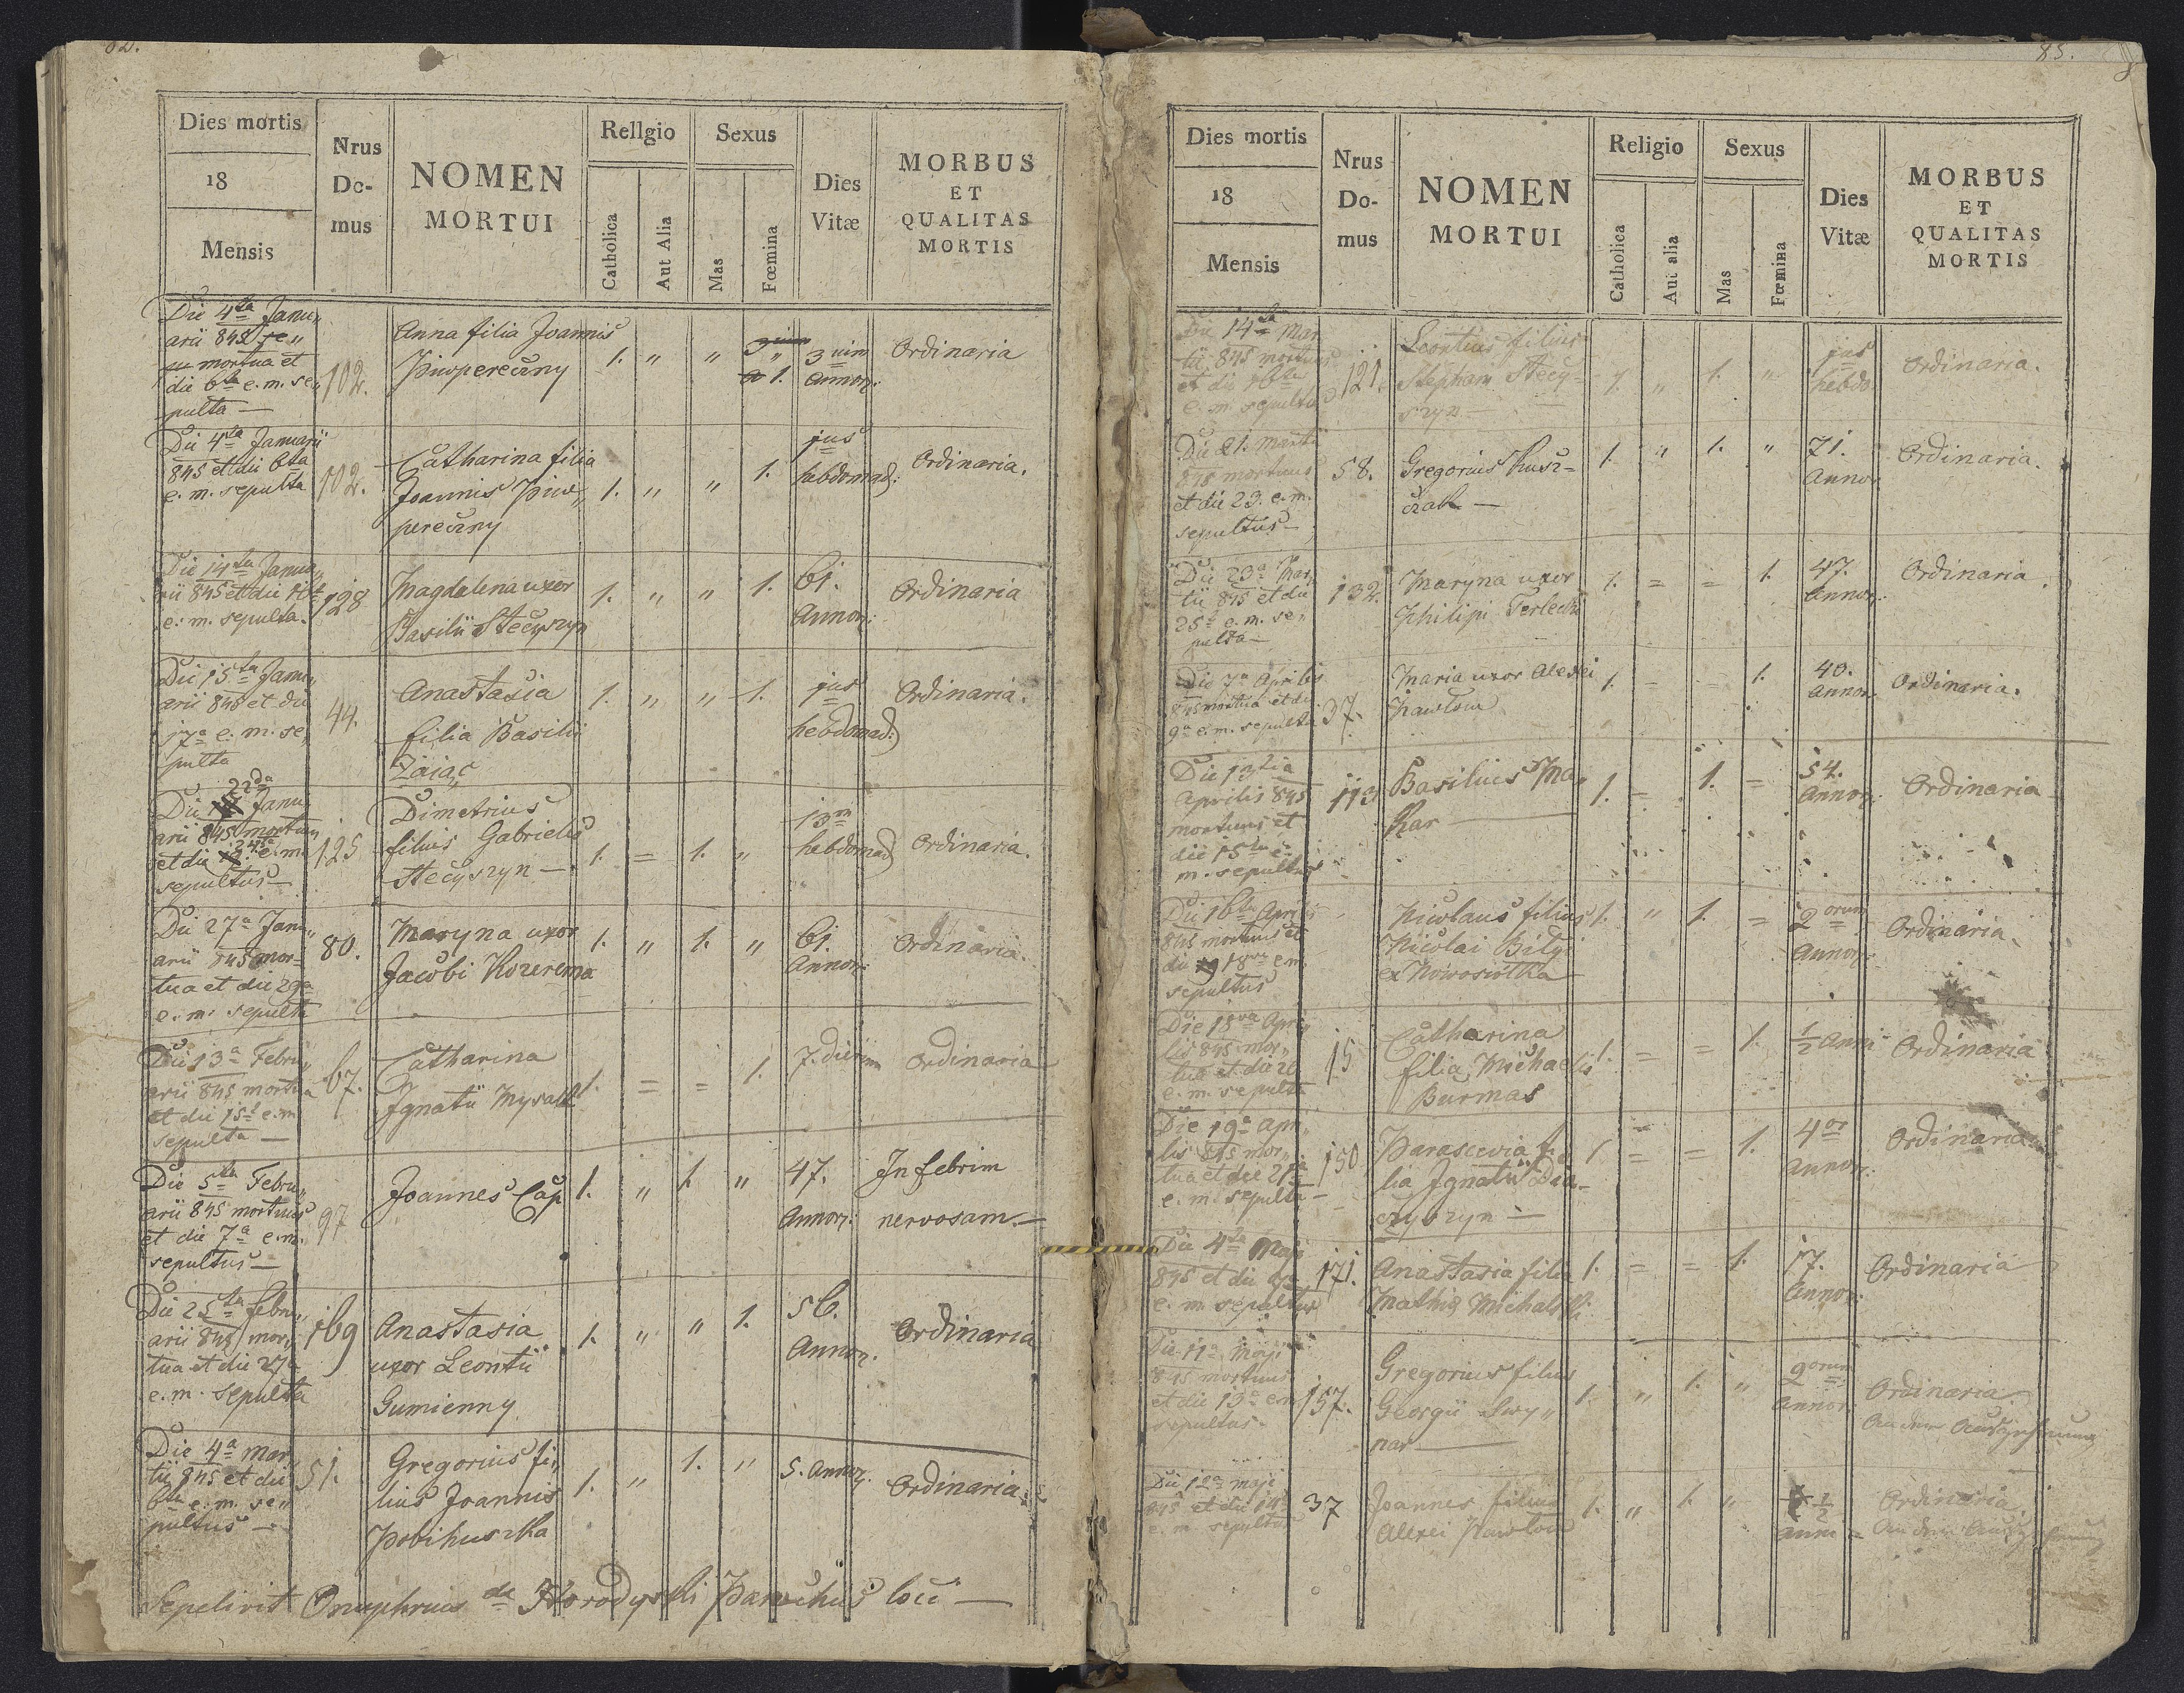 Dies mortis
18
Mensis
Nrus Do-mus
NOMEN MORTUI
Religio
Catholica
Aut Alia
Sexus
Mas
Fœmina
Dies Vitæ
MORBUS ET QUALITAS MORTIS
Die 4ta Janu„
arii 845
mortua et
die 6ta e. m. se„
pulta —
102.
Anna filia Joannis
Piwpereczny
1. „ „ 1.
3um
Annor:
Ordinaria
Die 4ta Januarii
845 et die 6ta
e. m. sepulta
102.
Catharina filia
Joannis Piw„
pereczny
1. „ „ 1.
jus
hebdomad:
Ordinaria.
Die 14ta Janua„
rii 845 et die 16t
e. m. sepulta.
128
Magdalena uxor
Basilii Stecyszyn
1. „ „ 1.
61.
Annor:
Ordinaria
Die 15ta Janu„
arii 845 et die
17a e. m. se„
pulta
44.
Anastasia
filia Basilii
Zaiąc
1. „ „ 1.
jus
hebdomad:
Ordinaria.
22da
Die Janu„
arii 845 mortuus
et die 24a e. m.
sepultus —
125
Dimetrius
filius Gabrielis
Stecyszyn —
1. = 1. „
13m
hebdomad
Ordinaria.
Die 27a Janu„
arii 845 mor=
tua et die 29a
e. m. sepulta
80.
Maryna uxor
Jacobi Kozerema
1. „ 1. „
61.
Annor:
Ordinaria.
Die 13a Febru„
arii 845 mortua
et die 15a e. m.
sepulta —
67.
Catharina
Ignatii Mysak
1. = = 1.
7. dierum
Ordinaria
Die 5ta Febru„
arii 845 mortuus
et die 7a e. m.
sepultus —
97
Joannes Cap
1. „ 1. „
47.
Annor:
In febrim
nervosam. —
Die 25ta febru„
arii 845 mor„
tua et die 27a
e. m. sepulta
169
Anastasia
uxor Leontii
Gumienny
1. „ „ 1.
56.
Annor.
Ordinaria
Die 4a Mar„
tii 845 et die
6ta e. m. se„
pultus —
51.
Gregorius fi„
lius Joannis
Pobihuszka
1. „ 1. „
5. Annor.
Ordinaria.
Sepelivit Onuphrius de Horodyski Parochus loci —
85.
Dies mortis
18
Mensis
Nrus Do-mus
NOMEN MORTUI
Religio
Catholica
Aut alia
Sexus
Mas
Fœmina
Dies Vitæ
MORBUS ET QUALITAS MORTIS
Die 14ta Mar
tii 845 mortuus
et die 16ta
e. m. sepultus
121.
Leontius filius
Stephani Stecy=
szyn —
1. „ 1. „
jus
hebdo
Ordinaria.
Die 21. Martii
845 mortuus
et die 23. e. m.
sepultus —
58.
Gregorius Husz=
czak —
1. „ 1. „
71.
Annor
Ordinaria.
Die 23a Mar„
tii 845 et die
25a e. m. se„
pulta —
132.
Maryna uxor
Philipi Terlecki
1. = = 1.
47.
Annor:
Ordinaria.
Die 7a Aprilis
845 mortua et die
9a e. m. sepulta
37.
Maria uxor Alexei
Pawlow
1. = = 1.
40.
Annor:
Ordinaria.
Die 13tia
Aprilis 845
mortuus et
die 15ta e.
m. sepultus
113
Basilius Ma„
kar —
1. = 1. =
54.
Annor:
Ordinaria
Die 16ta Aprilis
845 mortuus et
die 18va e. m.
sepultus
Nicolaus filius
Nicolai Bilyi
ex Nowosiolka
1. „ 1. =
2orum
Annor:
Ordinaria.
Die 18va Apri„
lis 845 mor„
tua et die 20
e. m. sepulta
15
Catharina
filia Michaelis
Burmas
1. = = 1.
½ Anni
Ordinaria
Die 19a Apri
lis 845 mor„
tua et die 21a
e. m. sepulta —
150
Parascevia fi„
lia Ignatii Dia=
czyszyn —
1. = = 1.
4or
Annor:
Ordinaria.
Die 4ta Maji
845 et die
e. m. sepultus
171.
Anastasia filia
Mathiae Michalski
1. = = 1.
17.
Annor:
Ordinaria
Die 11a Maji
845 mortuus
et die 13a e. m.
sepultus
157.
Gregorius filius
Georgii Swy„
nar —
1. „ 1. „
9orum
Annor:
Ordinaria
An der Auszehrung
Die 12a Maji
845 et die 14a
e. m. sepultus
37
Joannes filius
Alexei Pawlow
1. „ 1. „
½
Anni —
Ordinaria
An der Auszehrung